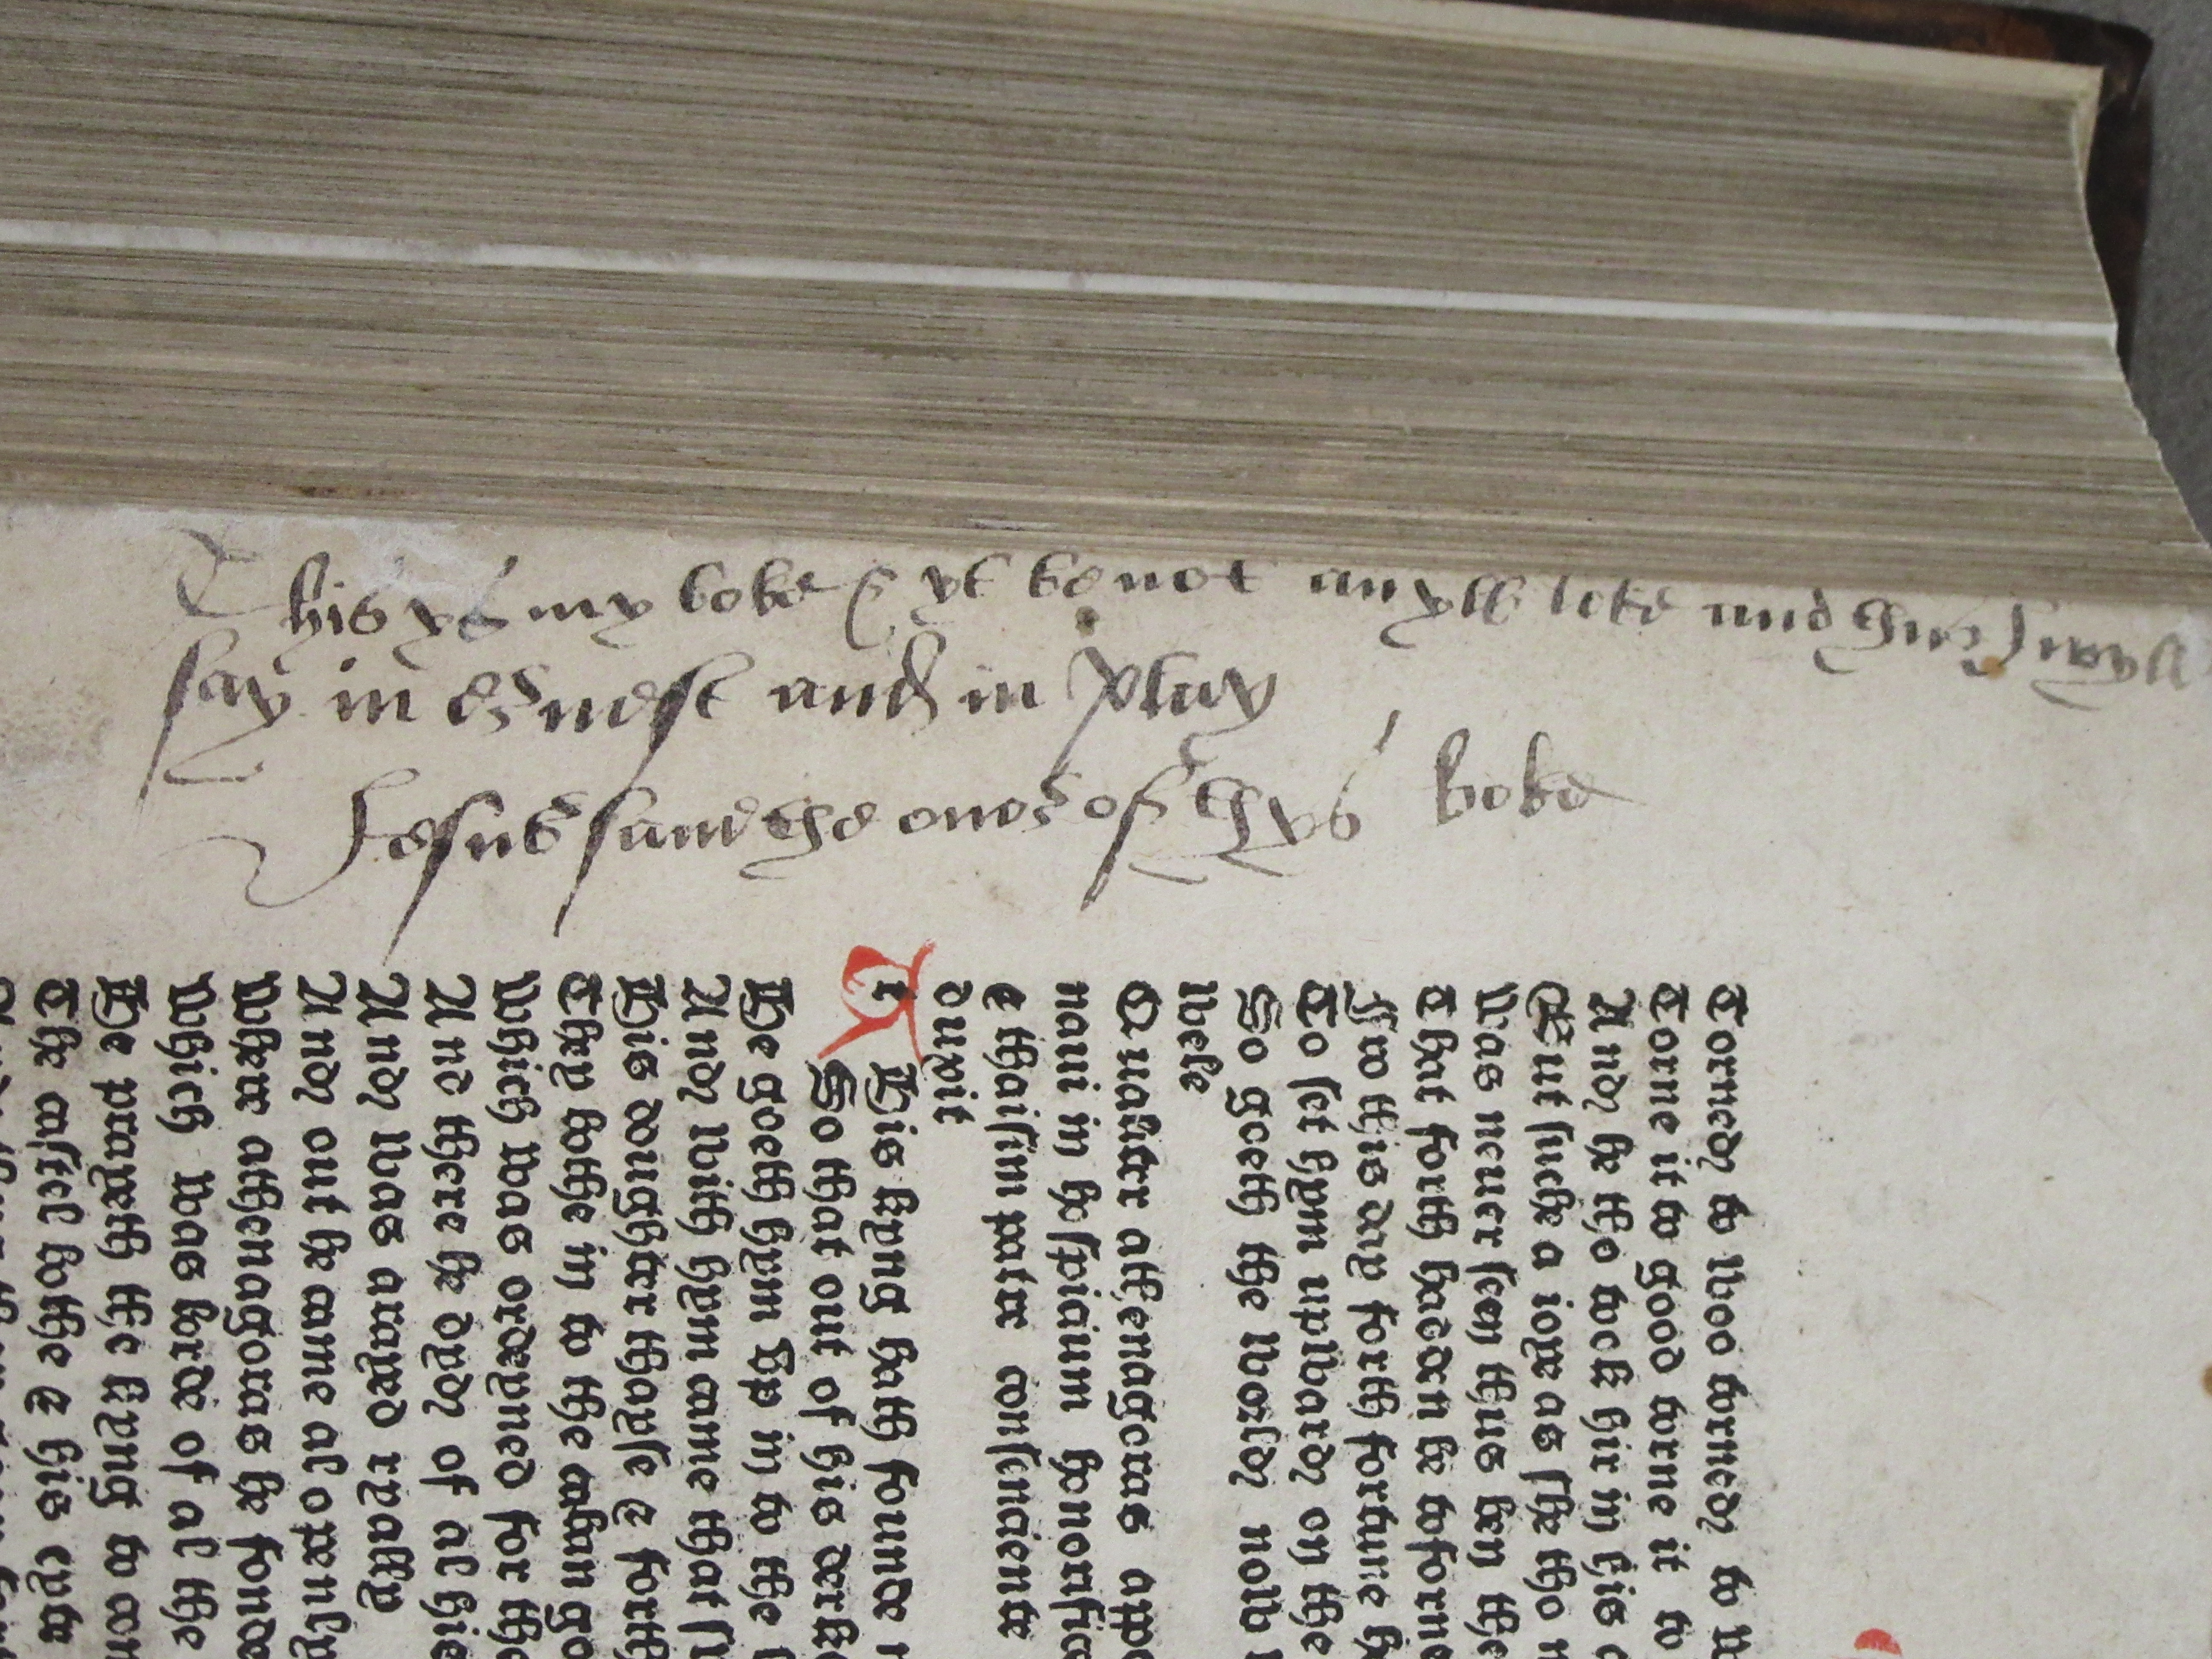 This ys my boke & yt be not loke and thus I
say in ernest and in play
Iesus saue the oner of thys boke
Torned to woo torned to
Torne it to good torne it to
And he tho took hir in his
But suche a ioye as she tho
Was neuer seen thus ben the
That forth hadden be toforne
Fro this day forth fortune
To set hym upward on the
So goeth the world now
wele
Qualiter athenagoras
naui in hospicium
e thaisim patre consenciente
duxit
His kyng hath founde
So that out of his
He goeth hym vp in to the
And with hym came that
His doughter thayse & forth
They bothe in to the caban
Which was ordeyned for the
And there he dyde of al his
And was arayed ryally
And out he came al openly
Where athenagoras he fonde
Which was lorde of al the
He prayeth the kyng to
The castel bothe & his cyte